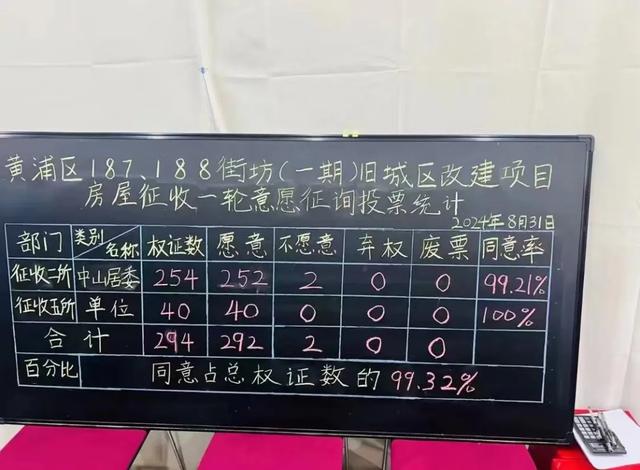 黄浦区187、188街坊(一期)旧城区改建项目
房屋征收一轮意愿征询投票统计
2024年8月31日
部门 类别 名称 权证数 愿意 不愿意 弃权 废票 同意率
征收二所 中山居委 254 252 2 0 0 99.21%
征收五所 单位 40 40 0 0 0 100%
合计 294 292 2 0 0
百分比 同意占总权证数的99.32%